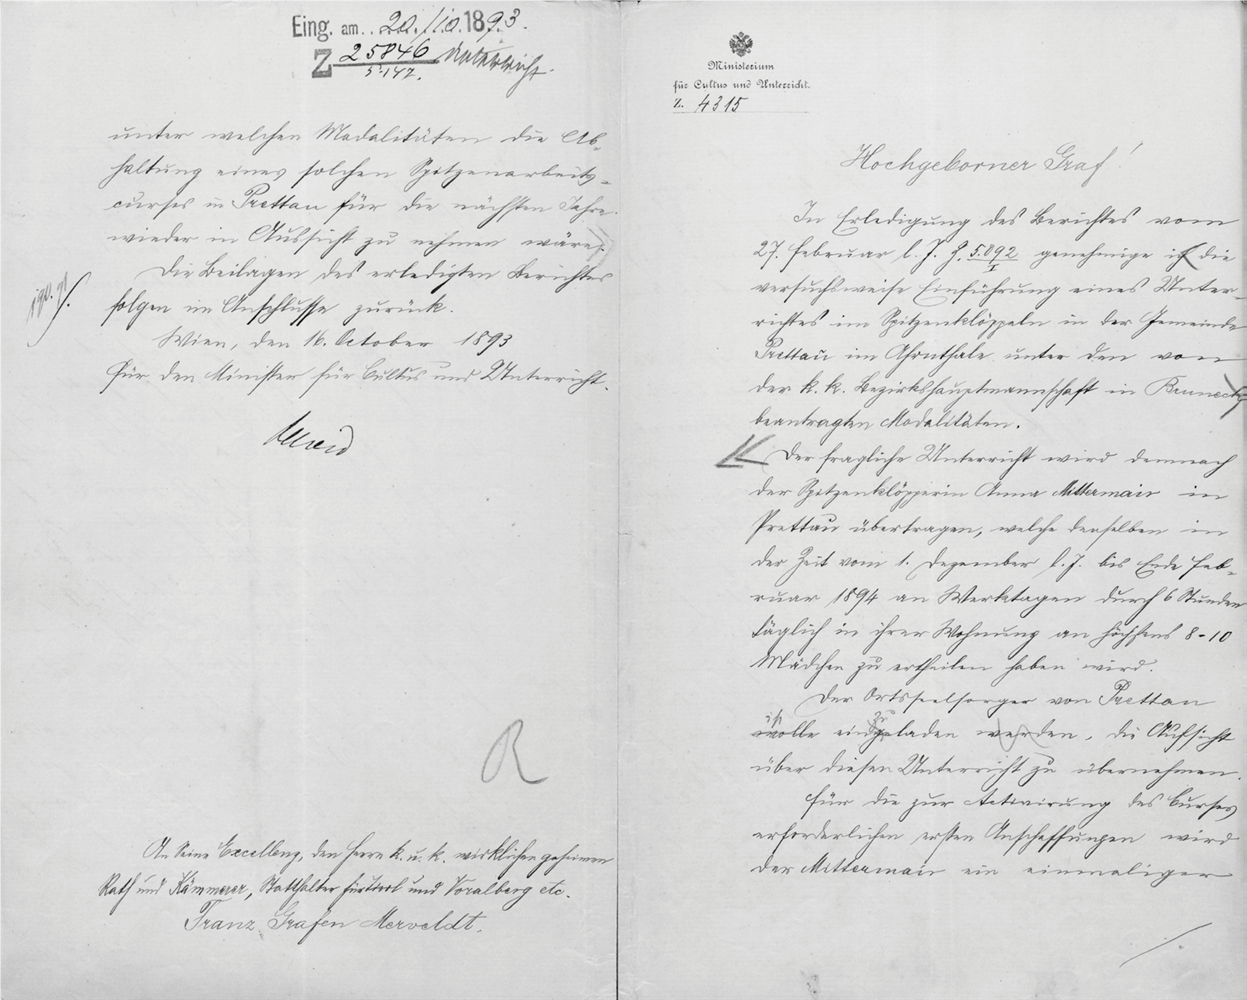 Eing. am 20./10. 1893.
Z 25846 Unterricht.
unter welchen Modalitäten die Ab-
haltung eines solchen Spitzenarbeits-
curses in Prettau für die nächsten Jahre
wieder in Aussicht zu nehmen wäre.
Die Beilagen des erledigten Berichtes
folgen im Anschlusse zurück.
Wien, den 16. October 1893
Für den Minister für Cultus und Unterricht.
R
An Seine Excellenz, den Herrn k. u. k. wirklichen geheimen
Rath und Kämmerer, Statthalter für Tirol und Voralberg etc.
Franz Grafen Merveldt.
Ministerium
für Cultus und Unterricht.
Z. 4315
Hochgeborner Graf!
In Erledigung des Berichtes vom
27. Februar l. J. Z. 5.092/I genehmige ich die
versuchsweise Einführung eines Unter-
richtes im Spitzenklöppeln in der Gemeinde
Prettau im Ahrnthale unter den von
der k. k. Bezirkshauptmannschaft in Bruneck
beantragten Modalitäten.
Der fragliche Unterricht wird demnach
der Spitzenklöpperin Anna Mittermair in
Prettau übertragen, welche denselben in
der Zeit vom 1. Dezember l. J. bis Ende Feb-
ruar 1894 an Werktagen durch 6 Stunden
täglich in ihrer Wohnung an höchstens 8-10
Mädchen zu ertheilen haben wird.
Der Ortsseelsorger von Prettau
wolle eingeladen werden, die Aufsicht
über diesen Unterricht zu übernehmen.
Für die zur Activirung des Curses
erforderlichen ersten Anschaffungen wird
der Mittermair ein einmaliger